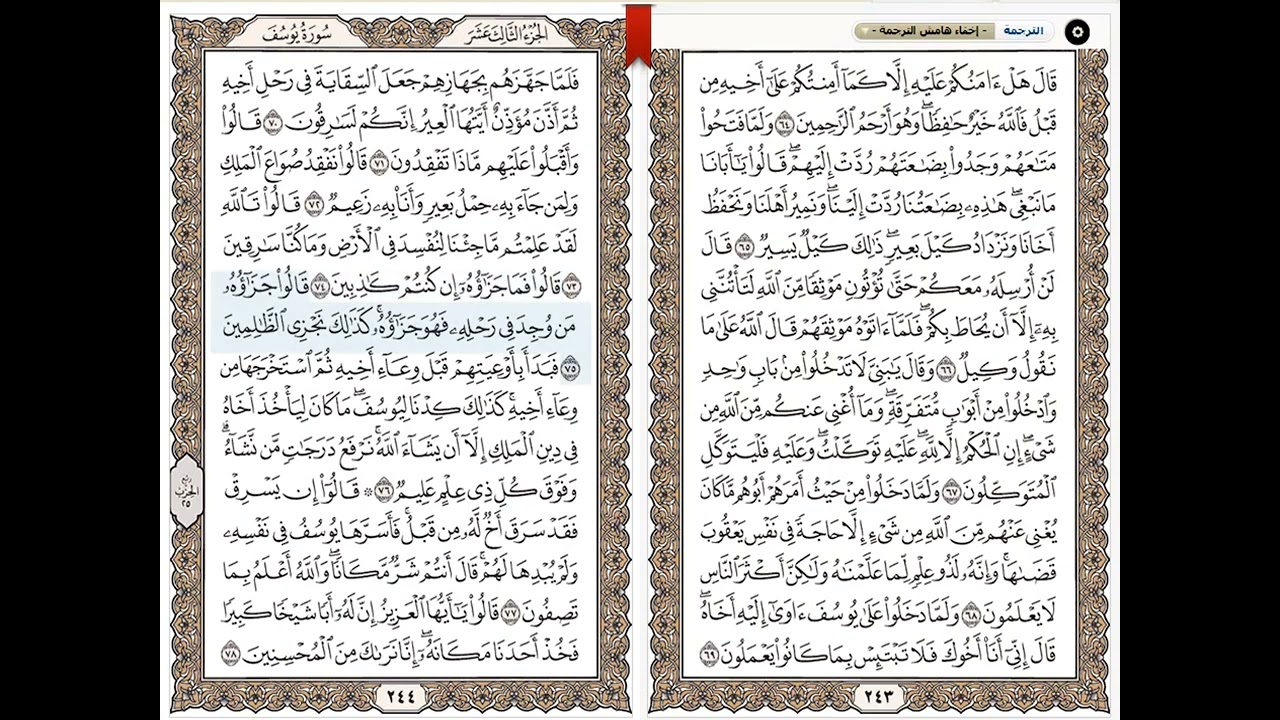 الترجمة
- إخفاء هامش الترجمة -
قَالَ هَلْ ءَامَنُكُمْ عَلَيْهِ إِلَّا كَمَآ أَمِنتُكُمْ عَلَىٰٓ أَخِيهِ مِن
قَبْلُ فَٱللَّهُ خَيْرٌ حَٰفِظًا ۖ وَهُوَ أَرْحَمُ ٱلرَّٰحِمِينَ ٦٤ وَلَمَّا فَتَحُوا۟
مَتَٰعَهُمْ وَجَدُوا۟ بِضَٰعَتَهُمْ رُدَّتْ إِلَيْهِمْ ۖ قَالُوا۟ يَٰٓأَبَانَا
مَا نَبْغِى ۖ هَٰذِهِۦ بِضَٰعَتُنَا رُدَّتْ إِلَيْنَا ۖ وَنَمِيرُ أَهْلَنَا وَنَحْفَظُ
أَخَانَا وَنَزْدَادُ كَيْلَ بَعِيرٍ ۖ ذَٰلِكَ كَيْلٌ يَسِيرٌ ٦٥ قَالَ
لَنْ أُرْسِلَهُۥ مَعَكُمْ حَتَّىٰ تُؤْتُونِ مَوْثِقًا مِّنَ ٱللَّهِ لَتَأْتُنَّنِى
بِهِۦٓ إِلَّآ أَن يُحَاطَ بِكُمْ ۖ فَلَمَّآ ءَاتَوْهُ مَوْثِقَهُمْ قَالَ ٱللَّهُ عَلَىٰ مَا
نَقُولُ وَكِيلٌ ٦٦ وَقَالَ يَٰبَنِىَّ لَا تَدْخُلُوا۟ مِنۢ بَابٍ وَٰحِدٍ
وَٱدْخُلُوا۟ مِنْ أَبْوَٰبٍ مُّتَفَرِّقَةٍ ۖ وَمَآ أُغْنِى عَنكُم مِّنَ ٱللَّهِ مِن
شَىْءٍ ۖ إِنِ ٱلْحُكْمُ إِلَّا لِلَّهِ ۖ عَلَيْهِ تَوَكَّلْتُ ۖ وَعَلَيْهِ فَلْيَتَوَكَّلِ
ٱلْمُتَوَكِّلُونَ ٦٧ وَلَمَّا دَخَلُوا۟ مِنْ حَيْثُ أَمَرَهُمْ أَبُوهُم مَّا كَانَ
يُغْنِى عَنْهُم مِّنَ ٱللَّهِ مِن شَىْءٍ إِلَّا حَاجَةً فِى نَفْسِ يَعْقُوبَ
قَضَىٰهَا ۚ وَإِنَّهُۥ لَذُو عِلْمٍ لِّمَا عَلَّمْنَٰهُ وَلَٰكِنَّ أَكْثَرَ ٱلنَّاسِ
لَا يَعْلَمُونَ ٦٨ وَلَمَّا دَخَلُوا۟ عَلَىٰ يُوسُفَ ءَاوَىٰٓ إِلَيْهِ أَخَاهُ ۖ
قَالَ إِنِّىٓ أَنَا۠ أَخُوكَ فَلَا تَبْتَئِسْ بِمَا كَانُوا۟ يَعْمَلُونَ ٦٩
٢٤٣
الجُزْءُ الثَّالِثَ عَشَرَ
سُورَةُ يُوسُفَ
فَلَمَّا جَهَّزَهُم بِجَهَازِهِمْ جَعَلَ ٱلسِّقَايَةَ فِى رَحْلِ أَخِيهِ
ثُمَّ أَذَّنَ مُؤَذِّنٌ أَيَّتُهَا ٱلْعِيرُ إِنَّكُمْ لَسَٰرِقُونَ ٧٠ قَالُوا۟
وَأَقْبَلُوا۟ عَلَيْهِم مَّاذَا تَفْقِدُونَ ٧١ قَالُوا۟ نَفْقِدُ صُوَاعَ ٱلْمَلِكِ
وَلِمَن جَآءَ بِهِۦ حِمْلُ بَعِيرٍ وَأَنَا۠ بِهِۦ زَعِيمٌ ٧٢ قَالُوا۟ تَٱللَّهِ
لَقَدْ عَلِمْتُم مَّا جِئْنَا لِنُفْسِدَ فِى ٱلْأَرْضِ وَمَا كُنَّا سَٰرِقِينَ
٧٣ قَالُوا۟ فَمَا جَزَٰٓؤُهُۥٓ إِن كُنتُمْ كَٰذِبِينَ ٧٤ قَالُوا۟ جَزَٰٓؤُهُۥ
مَن وُجِدَ فِى رَحْلِهِۦ فَهُوَ جَزَٰٓؤُهُۥ ۚ كَذَٰلِكَ نَجْزِى ٱلظَّٰلِمِينَ
٧٥ فَبَدَأَ بِأَوْعِيَتِهِمْ قَبْلَ وِعَآءِ أَخِيهِ ثُمَّ ٱسْتَخْرَجَهَا مِن
وِعَآءِ أَخِيهِ ۚ كَذَٰلِكَ كِدْنَا لِيُوسُفَ ۖ مَا كَانَ لِيَأْخُذَ أَخَاهُ
فِى دِينِ ٱلْمَلِكِ إِلَّآ أَن يَشَآءَ ٱللَّهُ ۚ نَرْفَعُ دَرَجَٰتٍ مَّن نَّشَآءُ ۗ
وَفَوْقَ كُلِّ ذِى عِلْمٍ عَلِيمٌ ٧٦ ۞ قَالُوٓا۟ إِن يَسْرِقْ
فَقَدْ سَرَقَ أَخٌ لَّهُۥ مِن قَبْلُ ۚ فَأَسَرَّهَا يُوسُفُ فِى نَفْسِهِۦ
وَلَمْ يُبْدِهَا لَهُمْ ۚ قَالَ أَنتُمْ شَرٌّ مَّكَانًا ۖ وَٱللَّهُ أَعْلَمُ بِمَا
تَصِفُونَ ٧٧ قَالُوا۟ يَٰٓأَيُّهَا ٱلْعَزِيزُ إِنَّ لَهُۥٓ أَبًا شَيْخًا كَبِيرًا
فَخُذْ أَحَدَنَا مَكَانَهُۥٓ ۖ إِنَّا نَرَىٰكَ مِنَ ٱلْمُحْسِنِينَ ٧٨
رُبْع
الحِزْب
٢٥
٢٤٤